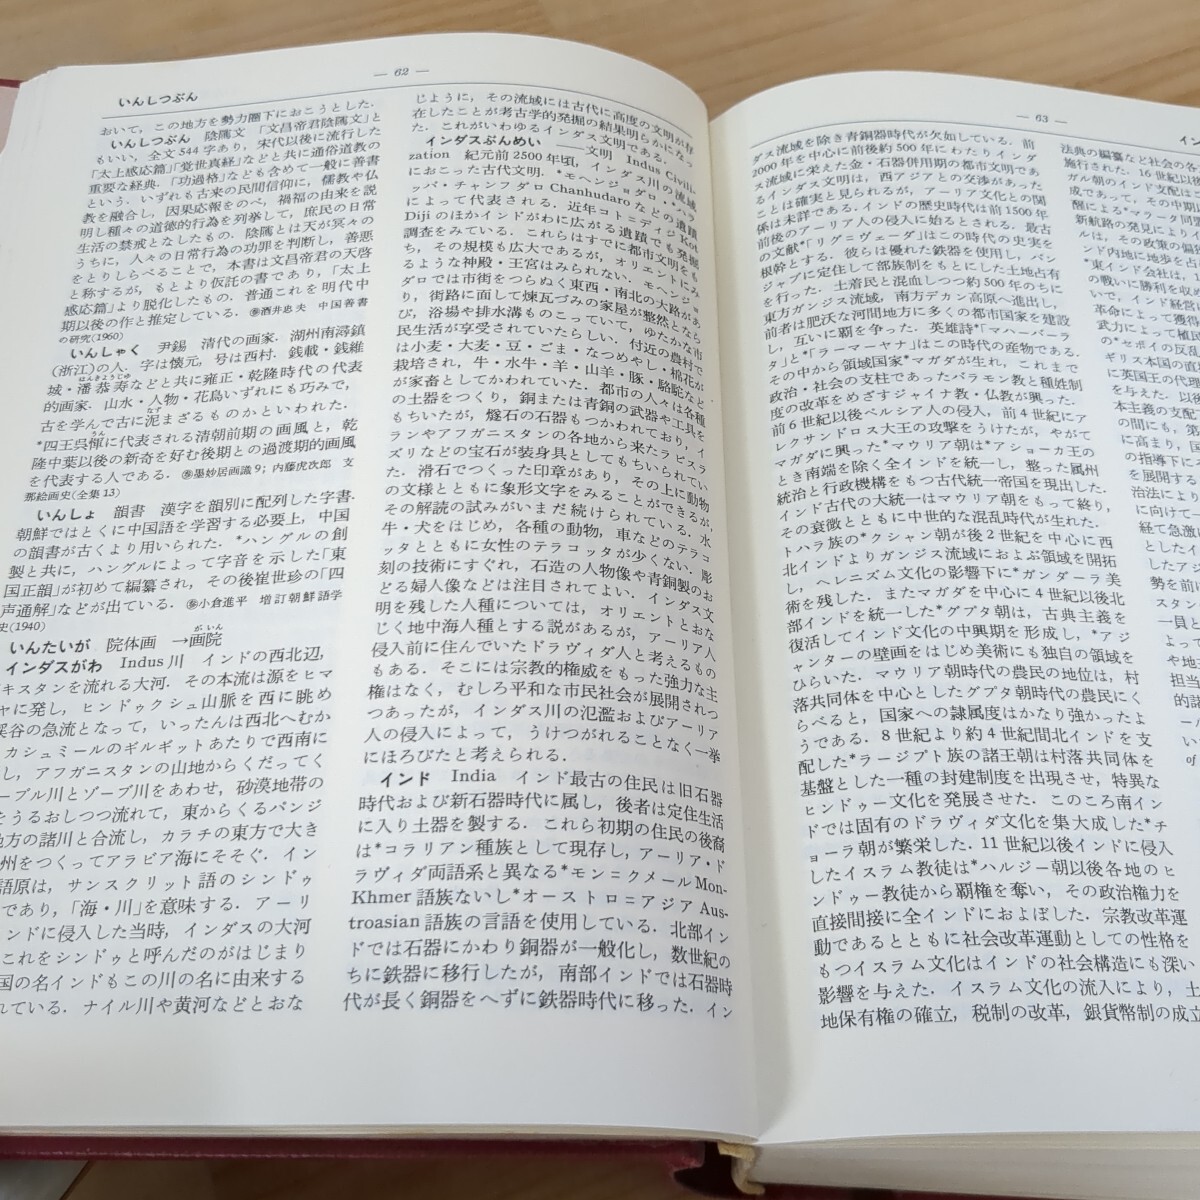 — 62 —
いんしつぶん
おいて，この地方を勢力圏下におこうとした．
いんしつぶん　陰隲文　「文昌帝君陰隲文」と
もいい，全文544字あり，宋代以後に流行した
「太上感応篇」「覚世真経」などと共に通俗道教の
重要な経典．「功過格」なども含めて一般に善書
という．いずれも古来の民間信仰に，儒教や仏
教を融合し，因果応報をのべ，禍福の由来を説
明し種々の道徳的行為を列挙して，庶民の日常
生活の禁戒となしたもの．陰隲とは天が冥々の
うちに，人々の日常行為の功罪を判断し，善悪
をとりしらべることで，本書は文昌帝君の天啓
と称するが，もとより仮託の書であり，「太上
感応篇」より脱化したもの．普通これを明代中
期以後の作と推定している．参酒井忠夫　中国善書
の研究(1960)
いんしゃく　尹錫　清代の画家．湖州南潯鎮
(浙江)の人．字は懐元，号は西村．銭載・銭維
城・潘恭寿などと共に雍正・乾隆時代の代表
的画家．山水・人物・花鳥いずれにも巧みで，
古を学んで古に泥まざるものかといわれた．
*四王呉惲に代表される清朝前期の画風と，乾
隆中葉以後の新奇を好む後期との過渡期的画風
を代表する人である．参墨妙居画識9；内藤虎次郎　支
那絵画史(全集13)
いんしょ　韻書　漢字を韻別に配列した字書．
朝鮮ではとくに中国語を学習する必要上，中国
の韻書が古くより用いられた．*ハングルの創
製と共に，ハングルによって字音を示した「東
国正韻」が初めて編纂され，その後崔世珍の「四
声通解」などが出ている．参小倉進平　増訂朝鮮語学
史(1940)
いんたいが　院体画　→画院
インダスがわ　Indus川　インドの西北辺，
キスタンを流れる大河．その本流は源をヒマ
ヤに発し，ヒンドゥクシュ山脈を西に眺め
渓谷の急流となって，いったんは西北へむか
カシュミールのギルギットあたりで西南に
し，アフガニスタンの山地からくだってく
ーブル川とゾーブ川をあわせ，砂漠地帯の
をうるおしつつ流れて，東からくるパンジ
地方の諸川と合流し，カラチの東方で大き
州をつくってアラビア海にそそぐ．イン
語原は，サンスクリット語のシンドゥ
であり，「海・川」を意味する．アーリ
ンドに侵入した当時，インダスの大河
これをシンドゥと呼んだのがはじまり
国の名インドもこの川の名に由来する
れている．ナイル川や黄河などとおな
じように，その流域には古代に高度の文明が存
在したことが考古学的発掘の結果明らかになっ
た．これがいわゆるインダス文明である．
インダスぶんめい　——文明　Indus Civili-
zation　紀元前2500年頃，インダス川の流域
におこった古代文明．*モヘンジョダロ・*ハラ
ッパ・チャンフダロChanhudaroなどの遺蹟
によって代表される．近年コトニディジKot
Dijiのほかインドがわに広がる遺蹟でも発掘
調査をみている．これらはすでに都市文明をも
ち，その規模も広大であるが，オリエントにみ
るような神殿・王宮はみられない．モヘンジョ
ダロでは市街をつらぬく東西・南北の大路があ
り，街路に面して煉瓦づみの家屋が整然となら
び，浴場や排水溝ものこっていて，ゆたかな市
民生活が享受されていたらしい．付近の農村で
は小麦・大麦・豆・ごま・なつめやし・棉花が
栽培され，牛・水牛・羊・山羊・豚・駱駝など
が家畜としてかわれていた．都市の人々は各種
の土器をつくり，銅または青銅の武器や工具を
もちいたが，燧石の石器もつかわれており，イ
ランやアフガニスタンの各地から来たラピスラ
ズリなどの宝石が装身具としてもちいられてい
た．滑石でつくった印章があり，その上に動物
の文様とともに象形文字をみることができるが，
その解読の試みがいまだ続けられている．水
牛・犬をはじめ，各種の動物，車などのテラコ
ッタとともに女性のテラコッタが少くない．彫
刻の技術にすぐれ，石造の人物像や青銅製のお
どる婦人像などは注目されてよい．インダス文
明を残した人種については，オリエントとおな
じく地中海人種とする説があるが，アーリア人
侵入前に住んでいたドラヴィダ人と考えるもの
もある．そこには宗教的権威をもった強力な主
権はなく，むしろ平和な市民社会が展開されつ
つあったが，インダス川の氾濫およびアーリア
人の侵入によって，うけつがれることなく一挙
にほろびたと考えられる．
インド　India　インド最古の住民は旧石器
時代および新石器時代に属し，後者は定住生活
に入り土器を製する．これら初期の住民の後裔
は*コラリアン種族として現存し，アーリア・ド
ラヴィダ両語系と異なる*モン＝クメールMon-
Khmer語族ないし*オーストロ＝アジアAus-
troasian語族の言語を使用している．北部イン
ドでは石器にかわり銅器が一般化し，数世紀の
ちに鉄器に移行したが，南部インドでは石器時
代が長く銅器をへずに鉄器時代に移った．イン
— 63 —
ダス流域を除き青銅器時代が欠如している．前
2000年を中心に前後約500年にわたりインダ
ス流域に栄えた金・石器併用期の都市文明であ
るインダス文明は，西アジアとの交渉があった
ことは確実と見られるが，アーリア文化との関
係は未詳である．インドの歴史時代は前1500年
前後のアーリア人の侵入に始るとされる．最古
の文献*「リグ＝ヴェーダ」はこの時代の史実を
根幹とする．彼らは優れた鉄器を使用し，パン
ジャブに定住して部族制をもとにした土地占有
を行った．土着民と混血しつつ約500年のちに
東方ガンジス流域，南方デカン高原へ進出し，
前者は肥沃な河間地方に多くの都市国家を建設
し，互いに覇を争った．英雄詩*「マハーバーラ
タ」と*「ラーマーヤナ」はこの時代の産物である．
その中から領域国家*マガダが生れ，これまで
政治・社会の支柱であったバラモン教と種姓制
度の改革をめざすジャイナ教・仏教が興った．
前6世紀以後ペルシア人の侵入，前4世紀にア
レクサンドロス大王の攻撃をうけたが，やがて
マガダに興った*マウリア朝は*アショーカ王の
とき南端を除く全インドを統一し，整った属州
統治と行政機構をもつ古代統一帝国を現出した．
インド古代の大統一はマウリア朝をもって終り，
その衰微とともに中世的な混乱時代が生れた．
トハラ族の*クシャン朝が後2世紀を中心に西
北インドよりガンジス流域におよぶ領域を開拓
し，ヘレニズム文化の影響下に*ガンダーラ美
術を残した．またマガダを中心に4世紀以後北
部インドを統一した*グプタ朝は，古典主義を
復活してインド文化の中興期を形成し，*アジ
ャンターの壁画をはじめ美術にも独自の領域を
ひらいた．マウリア朝時代の農民の地位は，村
落共同体を中心としたグプタ朝時代の農民にく
らべると，国家への隷属度はかなり強かったよ
うである．8世紀より約4世紀間北インドを支
配した*ラージプト族の諸王朝は村落共同体を
基盤とした一種の封建制度を出現させ，特異な
ヒンドゥー文化を発展させた．このころ南イン
ドでは固有のドラヴィダ文化を集大成した*チ
ョーラ朝が繁栄した．11世紀以後インドに侵入
したイスラム教徒は*ハルジー朝以後各地のヒ
ンドゥー教徒から覇権を奪い，その政治権力を
直接間接に全インドにおよぼした．宗教改革運
動であるとともに社会改革運動としての性格を
もつイスラム文化はインドの社会構造にも深い
影響を与えた．イスラム文化の流入により，土
地保有権の確立，税制の改革，銀貨幣制の成立
イン
法典の編纂など社会の各
施行された．16世紀以後
ガル朝のインド支配は
成であって，その中期
醒による*マラータ同
新航路の発見によりイ
ルは，その政策の偏
ンド内地に地歩を占
*東インド会社は，
の戦いに勝利を収め
いで，インド経営
革命によって獲得
武力によって植民
*セポイの反乱
ギリス本国の直
に英国王の代理
を与えた．以後
本主義の支配
の間にも，第
に高まり，国
の指導下に
を展開する
治法により
に向けて
経て急激
としたイ
したアジ
勢を前
スタン
一員と
よって
や地
担当
的諸
of